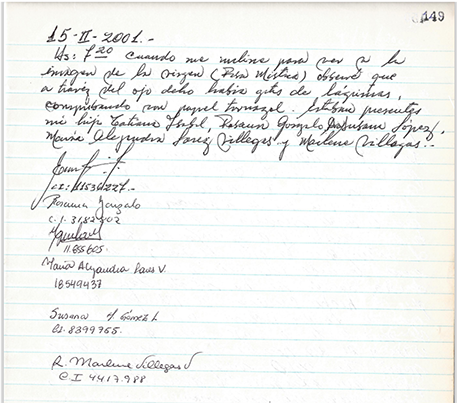 149
15-II-2001.-
Hs: 7 20 Cuando me incline para ver a la
imagen de la virgen (Rosa Mistica) observé que
a travez del ojo dcho había gts de lágrimas,
comprobando con papel tornasol. Estaban presentes
mi hija Tatiana Isabel, Rosaura Gonzalo, Susana López,
María Alejandra Saez Villegas y Marlene Villegas.-
C.I: 11536227.-
Rosaura Gonzalo
C.I. 3182402
11.855605.
María Alejandra Saez V.
18549437
Susana
CI. 8399765.
R. Marlene Villegas V
C.I 4417.988